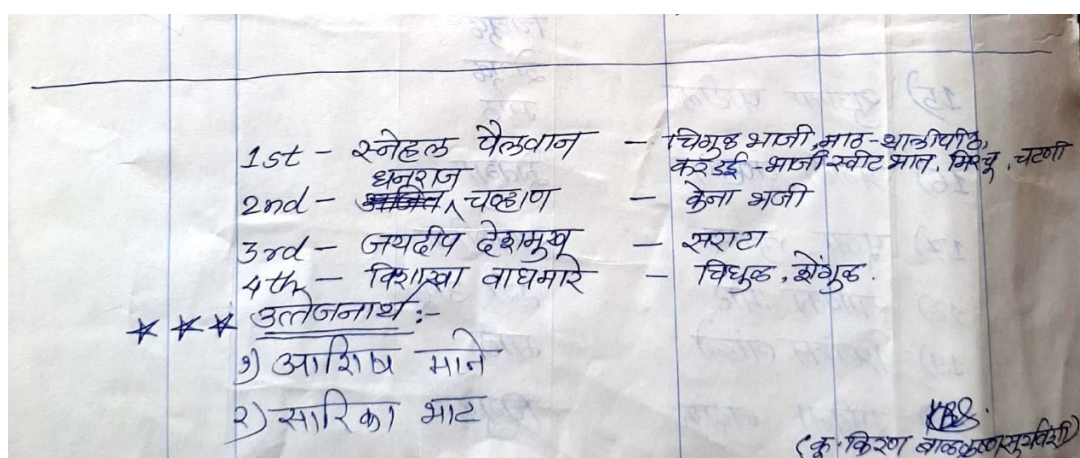 1st - स्नेहल पैलवान - चिगुळ भाजी, माठ-थालीपीठ,
करडई-भाजी-स्वीट भात, मिरचू, चटणी
धनराज
2nd - चव्हाण - केना भजी
3rd - जयदीप देशमुख - सराटा
4th - विशाखा वाघमारे - चिघुळ, शेंगुळ.
*** उत्तेजनार्थ :-
१) आशिष माने
२) सारिका भाट
(कु. किरण बाळकृष्ण सुर्यवंशी)